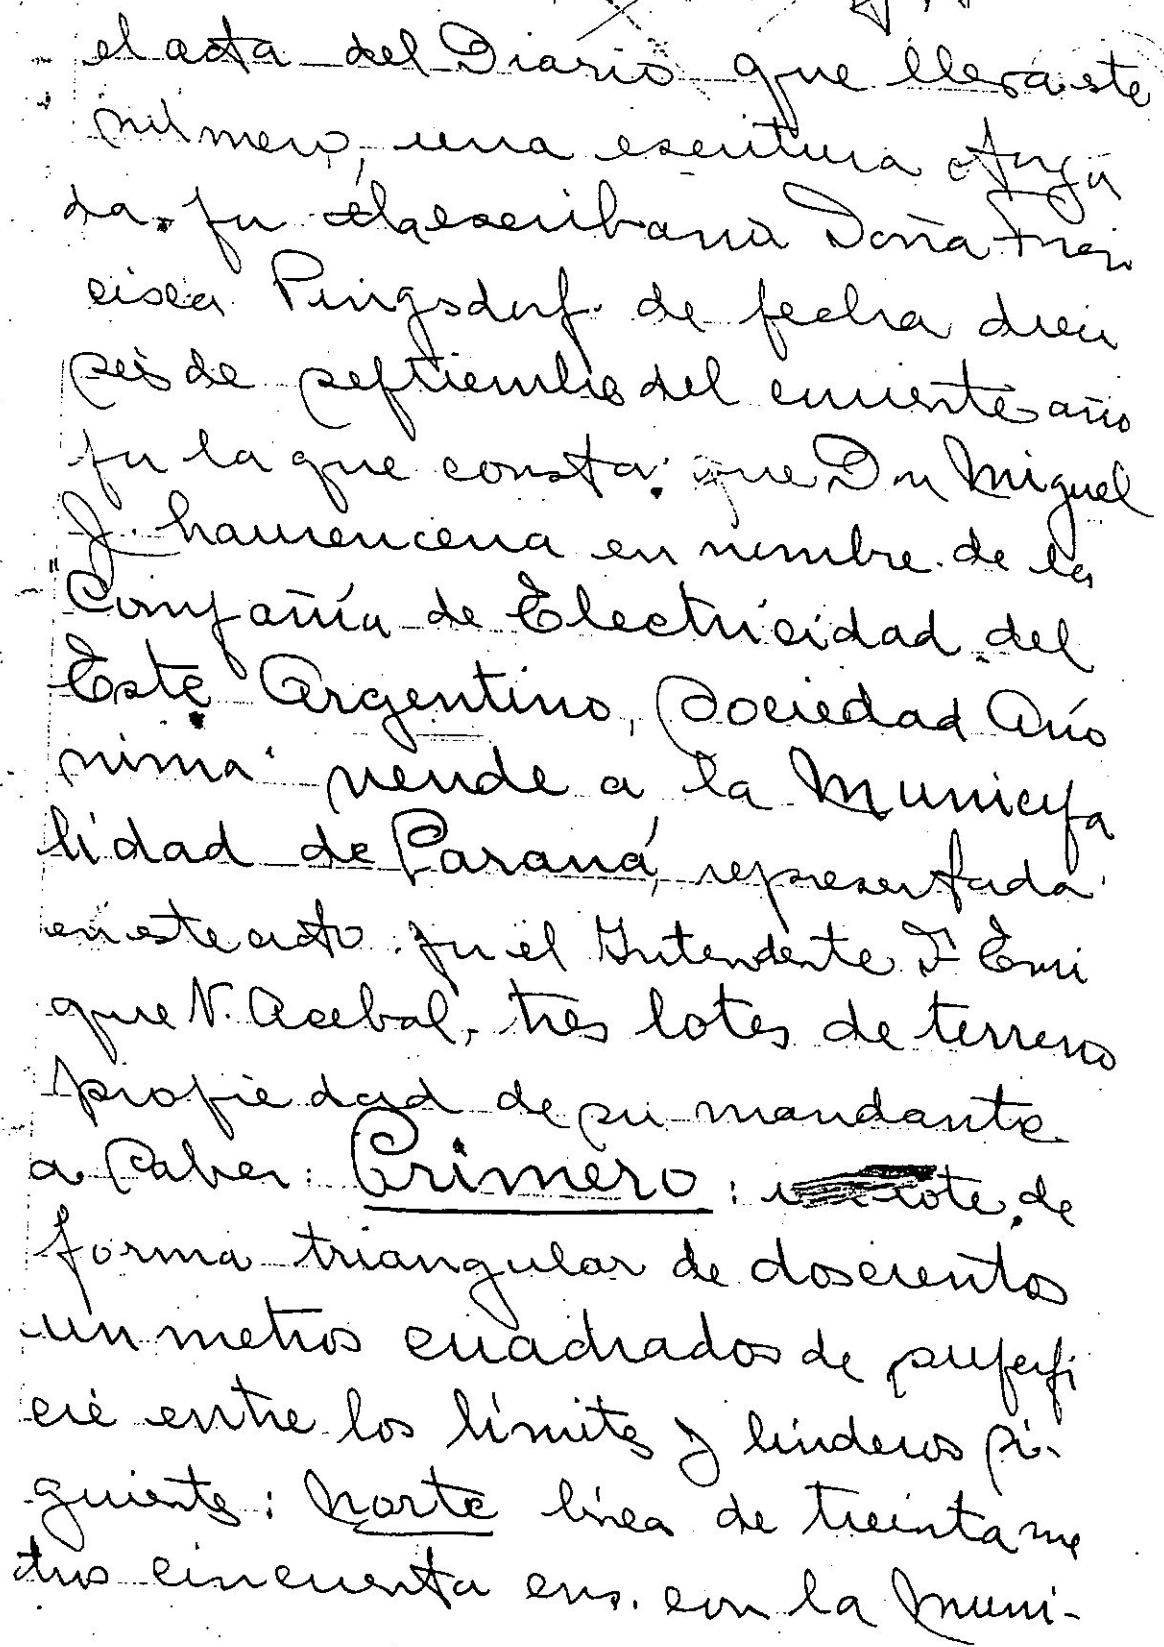 el acta del Diario que lleva este
número, una escritura otorga
da por la escribana Doña Fran
cisca Pingsdorf de fecha dieci
seis de septiembre del corriente año
por la que consta: que Don Miguel
J. Laurencena en nombre de la
"Compañía de Electricidad del
Este Argentino, Sociedad Anó
nima" vende a la Municipa
lidad de Paraná, representada
en este acto por el Intendente D Enri
que N. Acebal, tres lotes de terreno
propiedad de su mandante
a saber: Primero: lote de
forma triangular de doscientos
un metros cuadrados de superfi
cie entre los límites y linderos si-
guientes: Norte línea de treinta me
tros cincuenta cms. con la Muni-